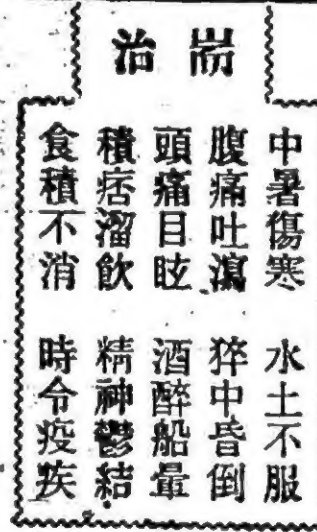 耑治
中暑傷寒　水土不服
腹痛吐瀉　猝中昏倒
頭痛目眩　酒醉船暈
積痞溜飲　精神鬱結
食積不消　時令疫疾